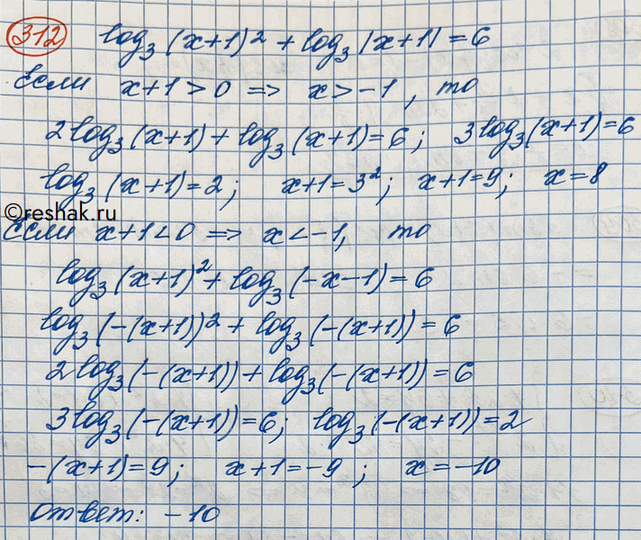 312 log₃(x+1)² + log₃|x+1| = 6
Если x+1>0 => x>-1, то
2log₃(x+1) + log₃(x+1)=6; 3log₃(x+1)=6
log₃(x+1)=2; x+1=3²; x+1=9; x=8
©reshak.ru
Если x+1<0 => x<-1, то
log₃(x+1)² + log₃(-x-1)=6
log₃(-(x+1))² + log₃(-(x+1))=6
2log₃(-(x+1)) + log₃(-(x+1))=6
3log₃(-(x+1))=6; log₃(-(x+1))=2
-(x+1)=9; x+1=-9; x=-10
Ответ: -10